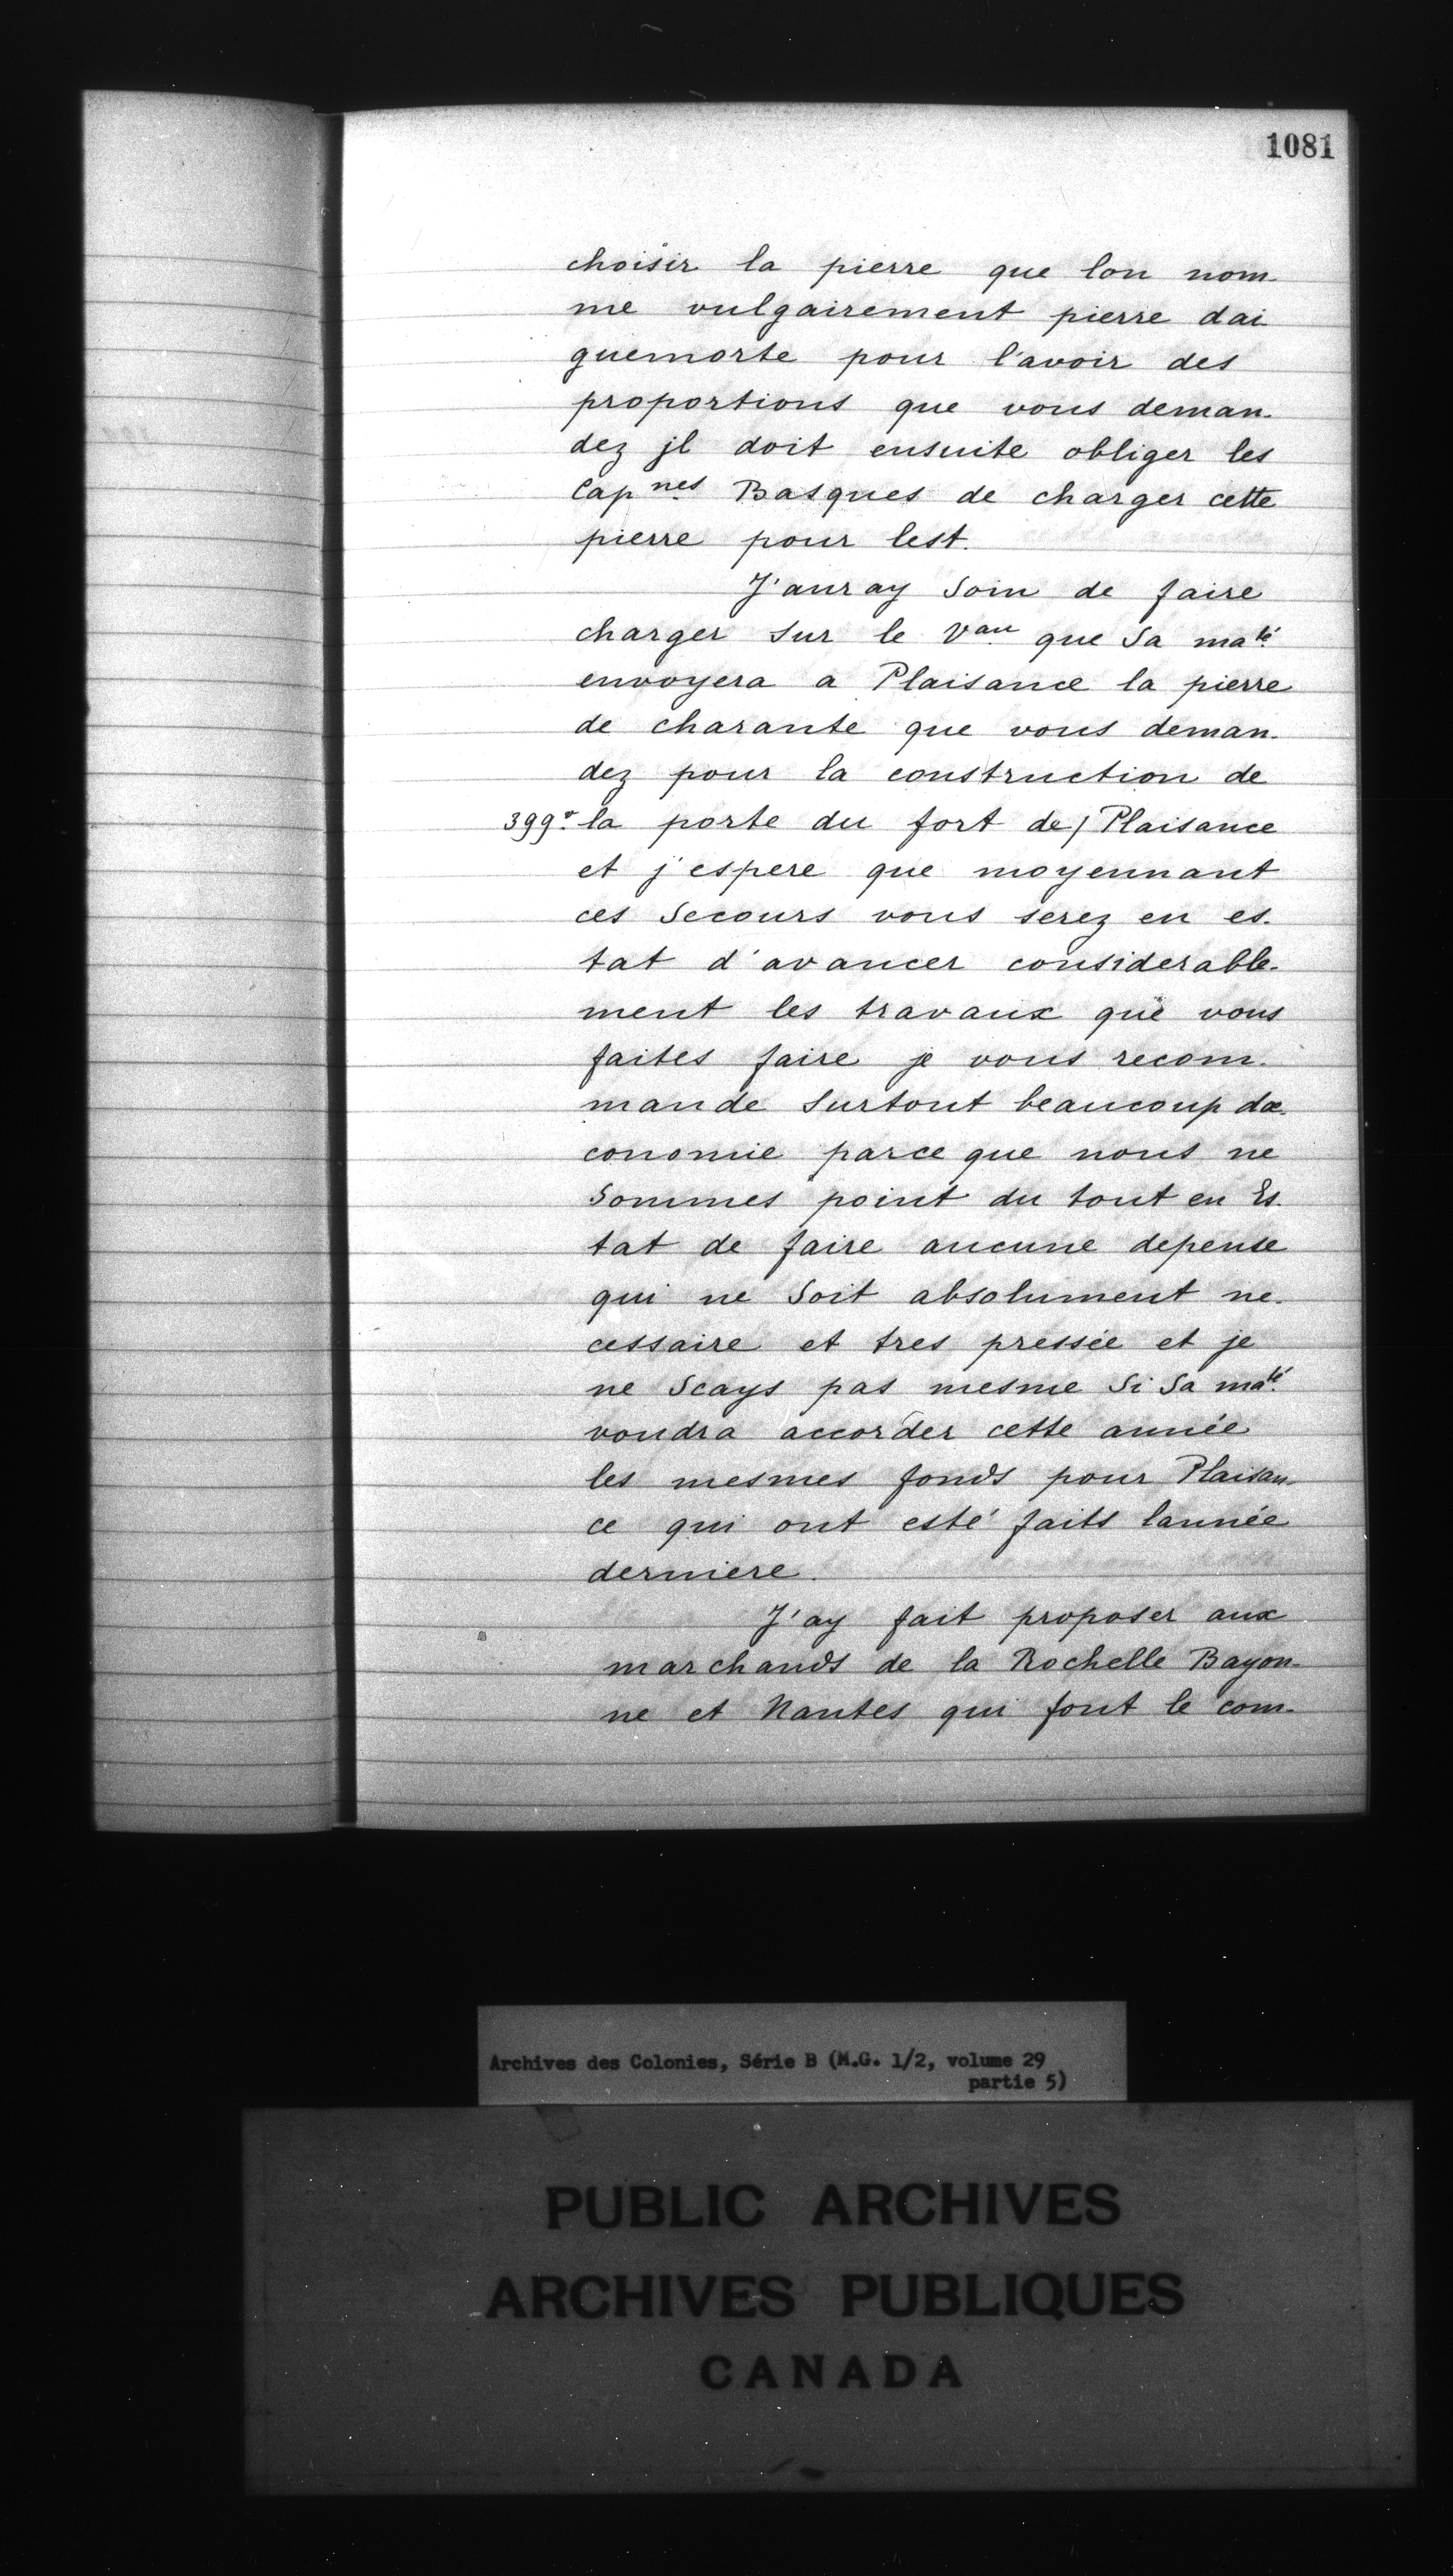 1081
choisir la pierre que lon nom-
me vulgairement pierre dai
guemorte pour l'avoir des
proportions que vous deman-
dez jl doit ensuite obliger les
Cap.nes Basques de charger cette
pierre pour lest.
J'auray soin de faire
charger sur le Vau que sa maté
envoyera a Plaisance la pierre
de charante que vous deman-
dez pour la construction de
399v. la porte du fort de / Plaisance
et j'espere que moyennant
ces secours vous serez en es-
tat d'avancer considerable-
ment les travaux que vous
faites faire je vous recom-
mande surtout beaucoup dœ-
conomie parce que nous ne
sommes point du tout en Es-
tat de faire aucune depense
qui ne soit absolument ne-
cessaire et tres pressée et je
ne scays pas mesme si sa maté
voudra accorder cette année
les mesmes fonds pour Plaisan-
ce qui ont esté faits lannée
derniere.
J'ay fait proposer aux
marchands de la Rochelle Bayon-
ne et Nantes qui font le com-
Archives des Colonies, Série B (M.G. 1/2, volume 29
partie 5)
PUBLIC ARCHIVES
ARCHIVES PUBLIQUES
CANADA